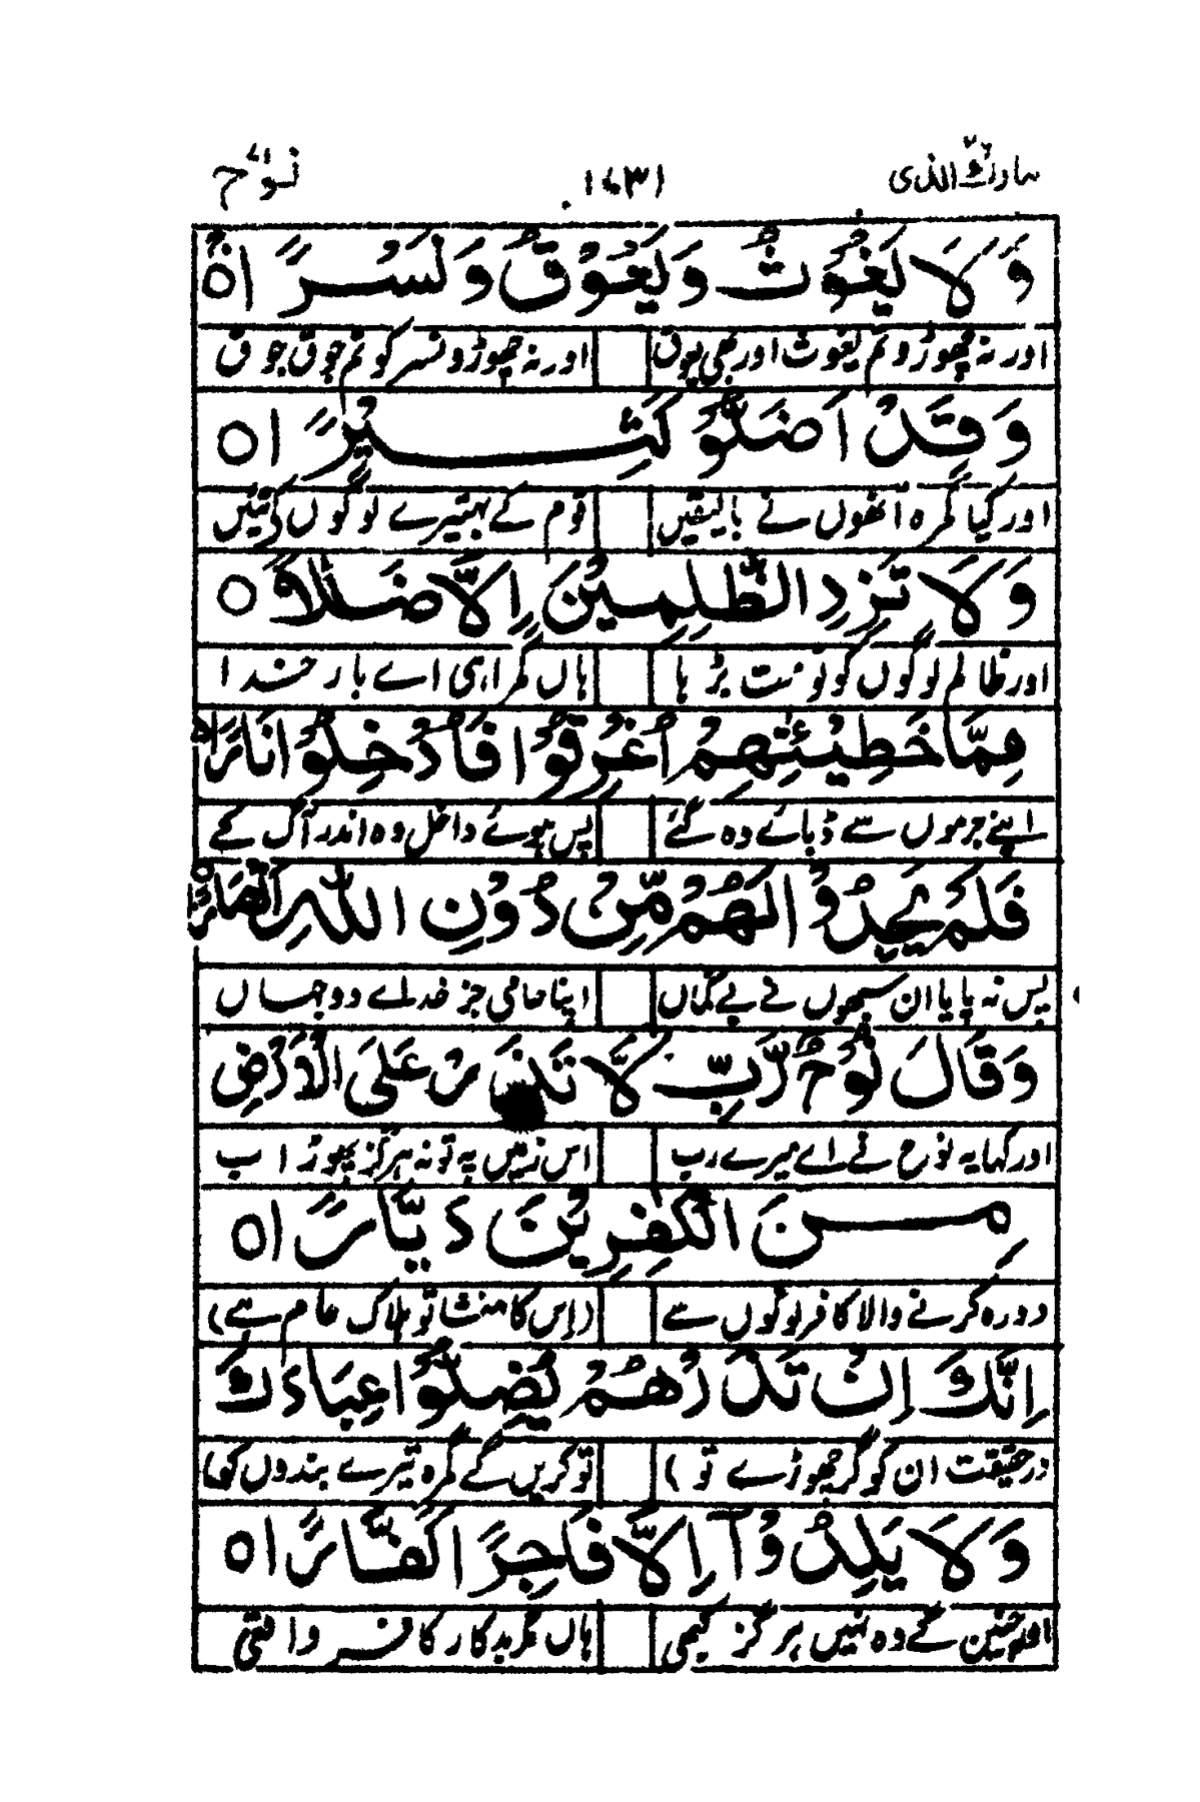 تبارك الذی ۲۹ ۱۶۳۱ نوح ۷۱
وَلَا يَغُوْثَ وَيَعُوْقَ وَنَسْرًا ○
اور نہ چھوڑو تم یغوث اور بھی یوق اور نہ چھوڑو نسر کو تم جوق جوق
وَقَدْ اَضَلُّوْ كَثِيْرًا ○
اور کیا گمرہ انھوں نے بالیقیں قوم کے بہتیرے لوگوں کے تئیں
وَلَا تَزِدِ الظّٰلِمِيْنَ اِلَّا ضَلٰلًا ○
اور ظالم لوگوں کو تو مت بڑہا ہاں گمراہی اے بار خدا
مِمَّا خَطِيْئٰتِهِمْ اُغْرِقُوْا فَاُدْخِلُوْا نَارًا ○
اپنے جرموں سے ڈبائے وہ گئے پس ہوئے داخل وہ اندر آگ کے
فَلَمْ يَجِدُوْا لَهُمْ مِّنْ دُوْنِ اللّٰهِ اَنْصَارًا ○
پس نہ پایا ان سبھوں نے بے گماں اپنا حامی جز خدائے دو جہاں
وَقَالَ نُوْحٌ رَّبِّ لَا تَذَرْ عَلَى الْاَرْضِ
اور کہا یہ نوح نے اے میرے رب اس زمیں پہ تو نہ ہرگز چھوڑ اب
مِنَ الْكٰفِرِيْنَ دَيَّارًا ○
دورہ کرنے والا کافر لوگوں سے (اِس کا منشا تو ہلاک عام ہے)
اِنَّكَ اِنْ تَذَرْهُمْ يُضِلُّوْا عِبَادَكَ
درحقیقت ان کو گر چھوڑے تو ) تو کریں گے گمرہ تیرے بندوں کو (
وَلَا يَلِدُوْٓا اِلَّا فَاجِرًا كَفَّارًا ○
اور جنیں گے وہ نہیں ہرگز کبھی ہاں مگر بدکار کافر واقعی